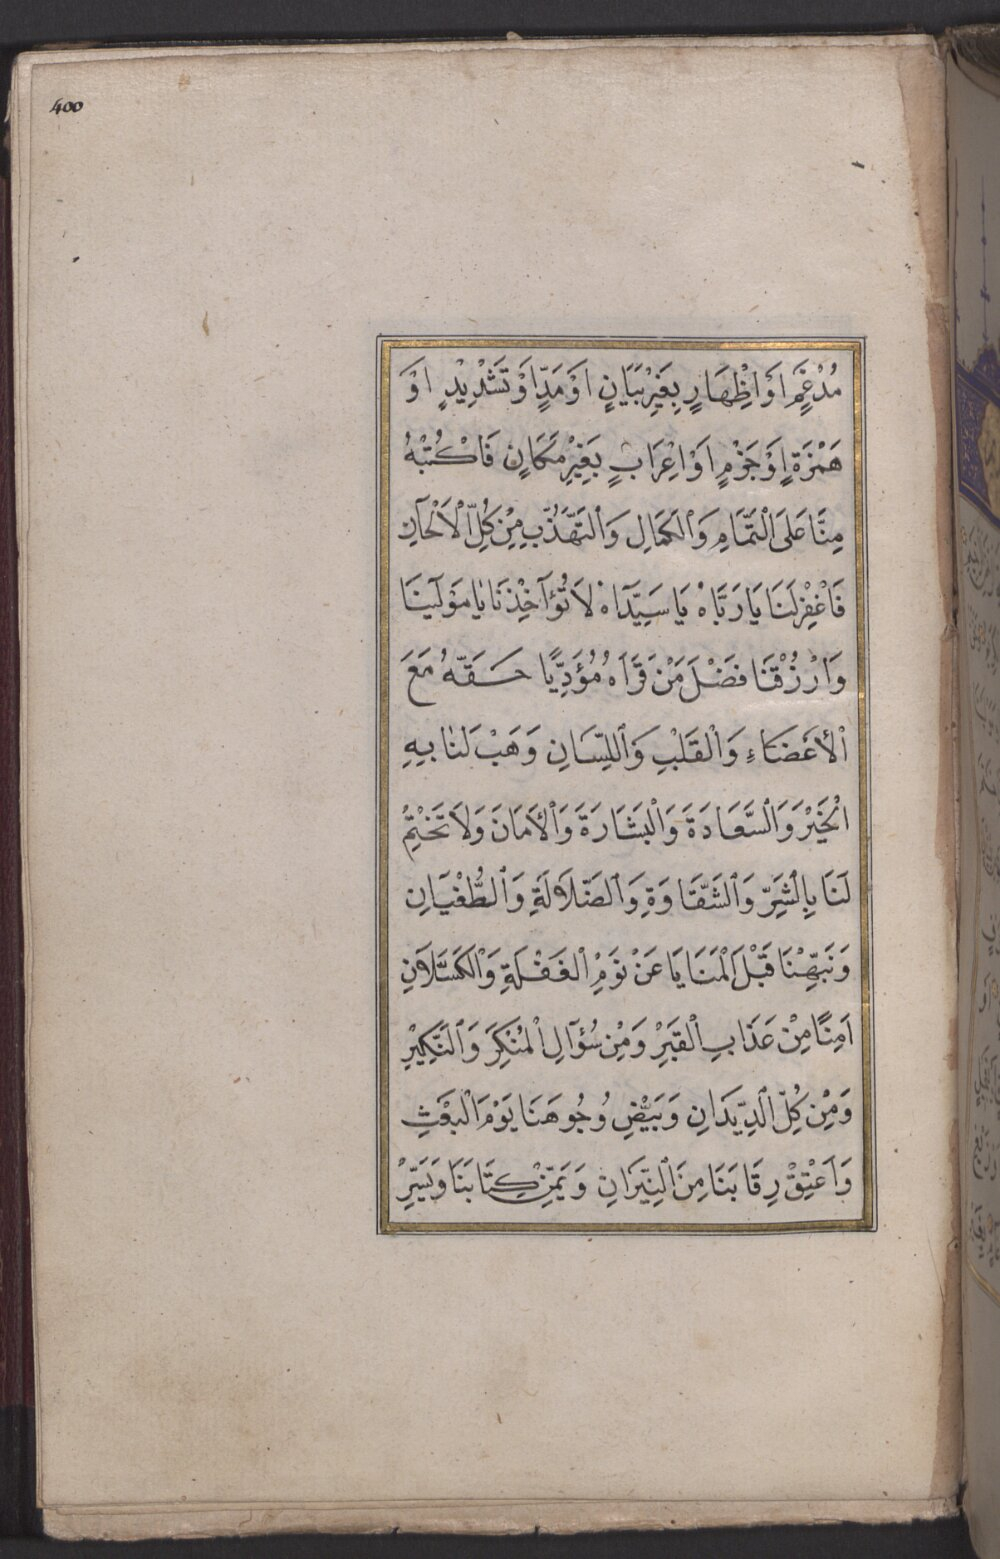 400
مُدْغَمٍ اَوْ اِظْهَارٍ بِغَيْرِ بَيَانٍ اَوْ مَدٍّ اَوْ تَشْدِيْدٍ اَوْ
هَمْزَةٍ اَوْ جَزْمٍ اَوْ اِعْرَابٍ بِغَيْرِ مَكَانٍ فَاكْتُبْهُ
مِنَّا عَلَى الْتَّمَامِ وَالْكَمَالِ وَالتَّهَذُّبِ مِنْ كُلِّ الْاَلْحَانِ
فَاغْفِرْ لَنَا يَا رَبَّاهْ يَا سَيِّدَاهْ لَا تُؤَآخِذْنَا يَا مَوْلَيْنَا
وَارْزُقْنَا فَضْلَ مَنْ قَرَاَهُ مُؤَدِّيًا حَقَّهُ مَعَ
الْاَعْضَاءِ وَالْقَلْبِ وَاللِّسَانِ وَهَبْ لَنَا بِهِ
الْخَيْرَ وَالسَّعَادَةَ وَالْبَشَارَةَ وَالْاَمَانَ وَلَا تَخْتِمْ
لَنَا بِالشَّرِّ وَالشَّقَاوَةِ وَالضَّلَالَةِ وَالطُّغْيَانِ
وَنَبِّهْنَا قَبْلَ الْمَنَايَا عَنْ نَوْمِ الْغَفْلَةِ وَالْكَسَلَانِ
اٰمِنًا مِنْ عَذَابِ الْقَبْرِ وَمِنْ سُؤَالِ الْمُنْكَرِ وَالنَّكِيْرِ
وَمِنْ كُلِّ الدِّيْدَانِ وَبَيِّضْ وُجُوهَنَا يَوْمَ الْبَعْثِ
وَاَعْتِقْ رِقَابَنَا مِنَ النِّيْرَانِ وَيَمِّنْ كِتَابَنَا وَيَسِّرْ